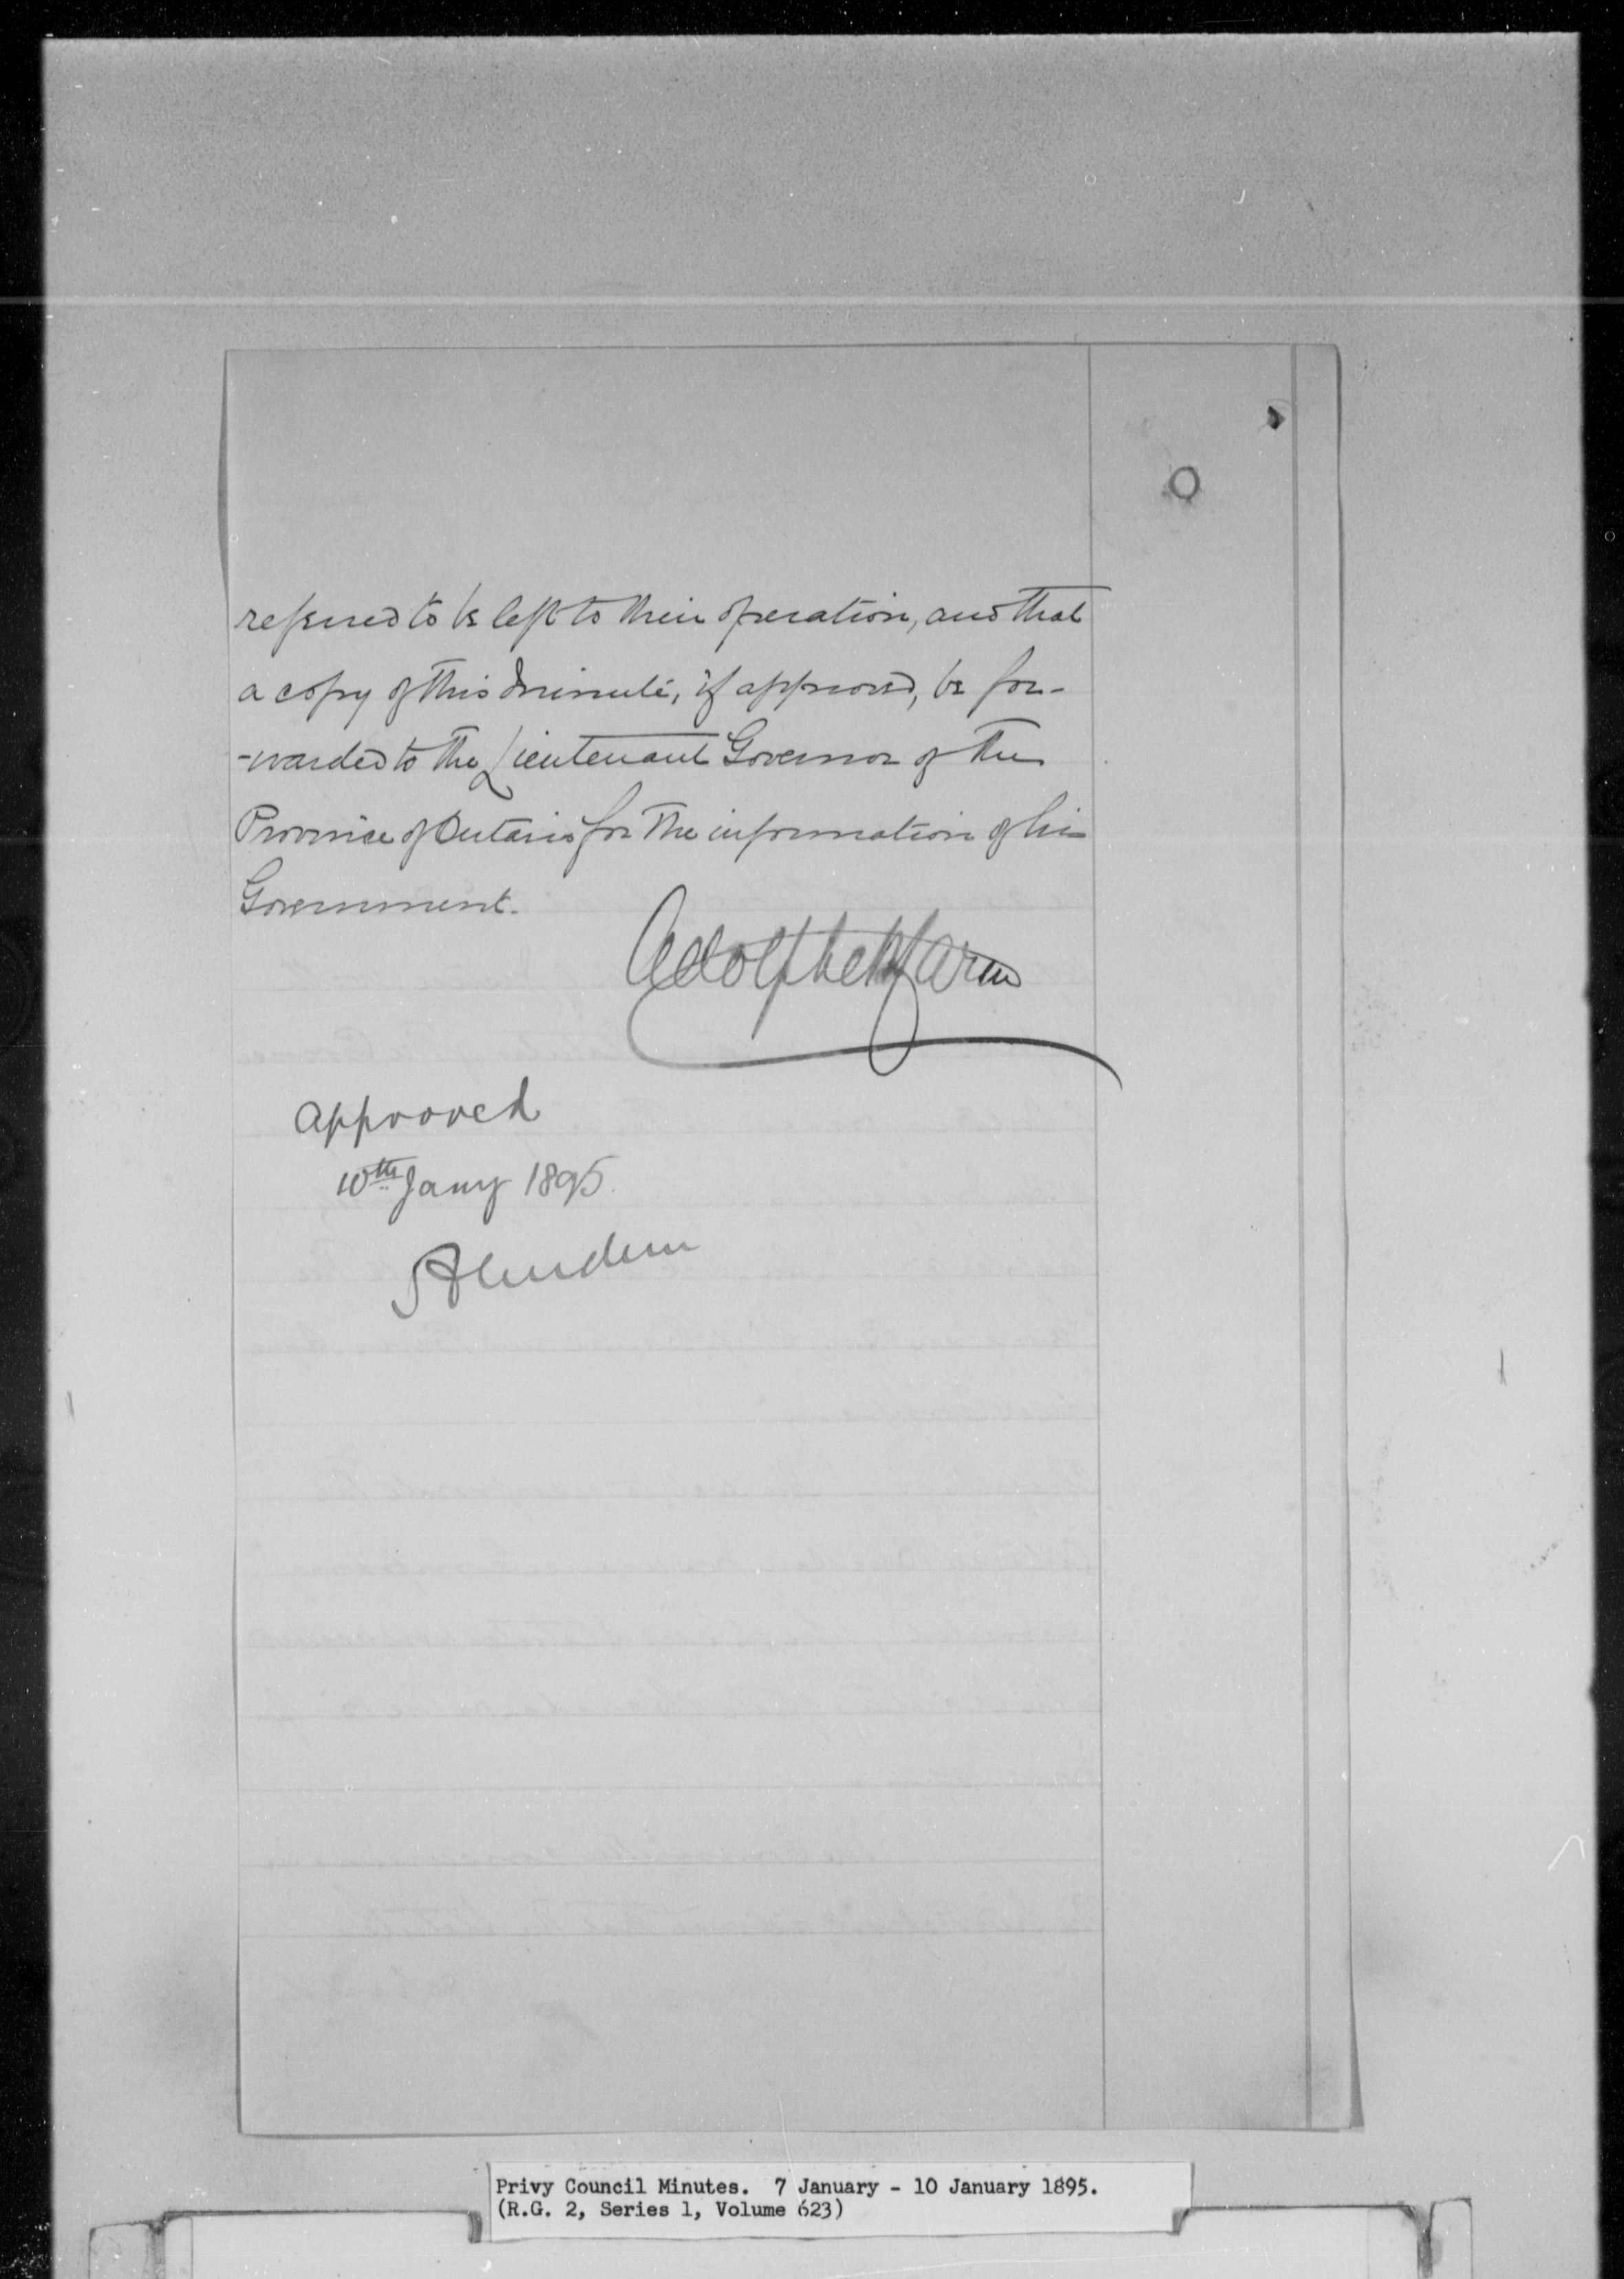 referred to be left to their operation, and that
a copy of this Minute, if approved, be for-
-warded to the Lieutenant Governor of the
Province of Ontario for the information of his
Government.
Adolphe P Caron
Approved
10th Jany 1895.
Aberdeen
Privy Council Minutes. 7 January - 10 January 1895.
(R.G. 2, Series 1, Volume 623)